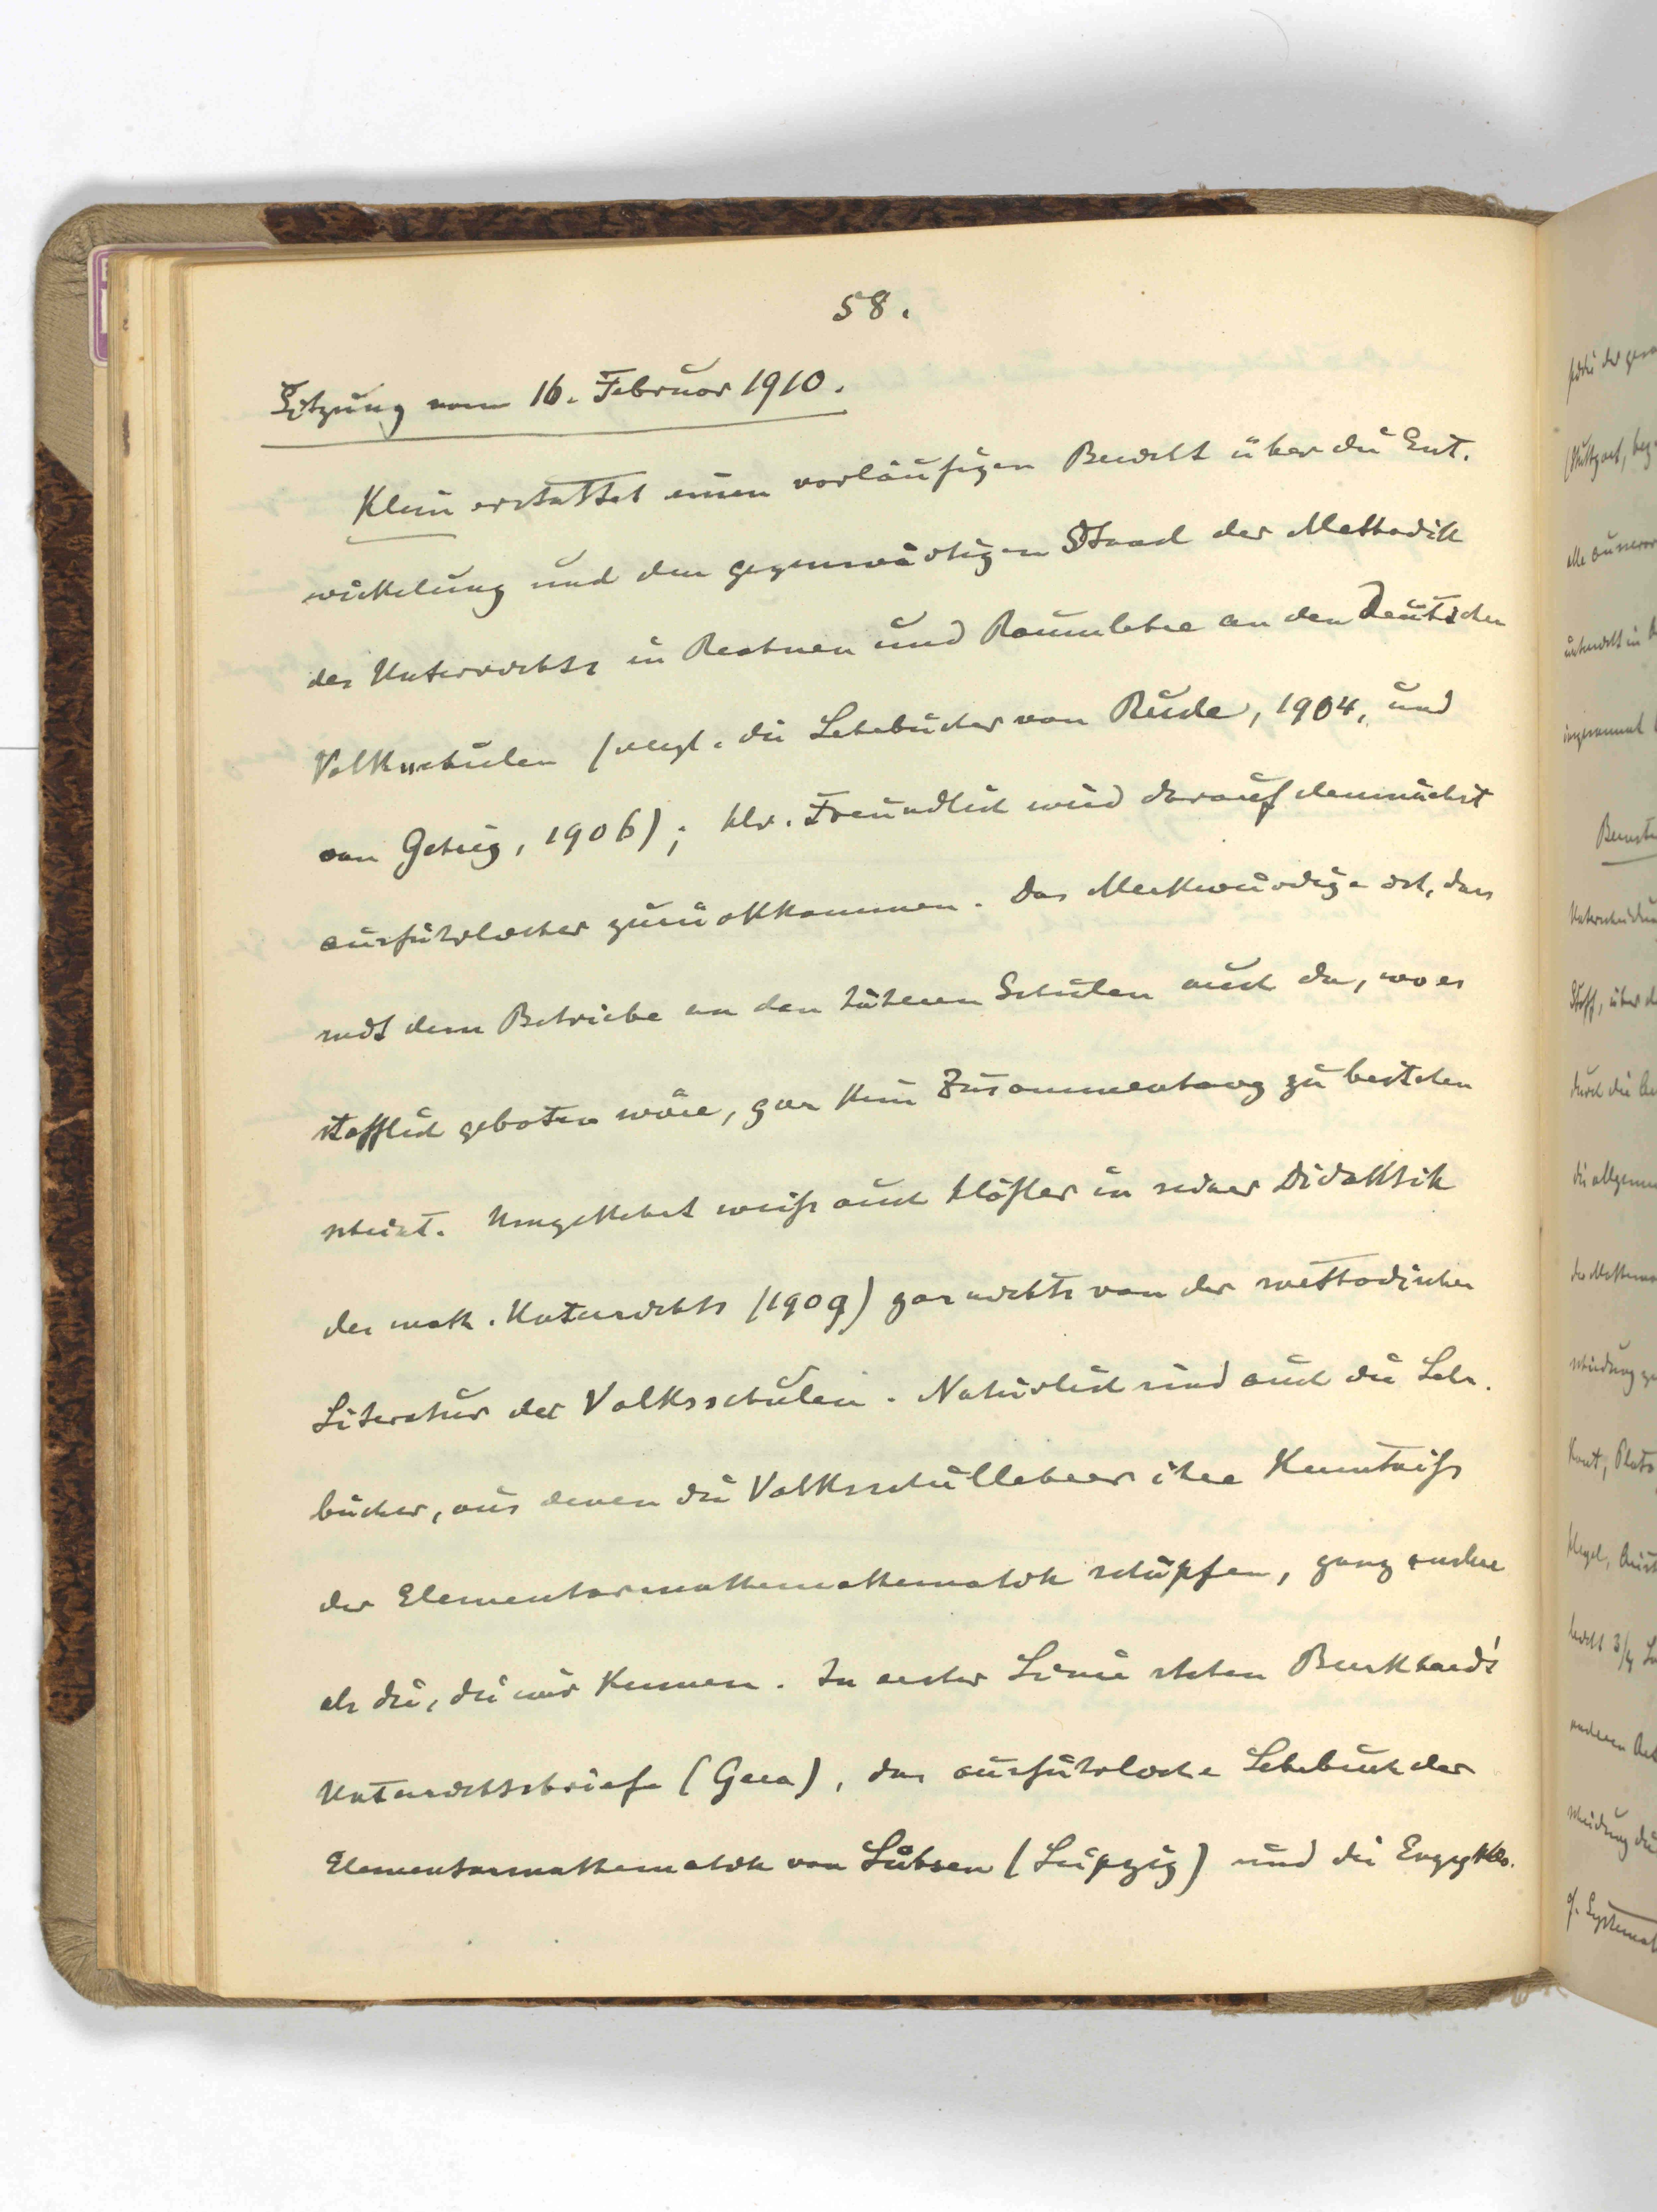 58.
Sitzung vom 16. Februar 1910.
Klein erstattet einen vorläufigen Bericht über die Ent-
wickelung und den gegenwärtigen Stand der Methodik
des Unterrichts in Rechnen und Raumlehre an den Deutschen
Volksschulen (vergl. die Lehrbücher von Rude, 1904, und
von Gehrig, 1906); Hr. Freundlich wird darauf demnächst
ausführlicher zurückkommen. Das Merkwürdige ist, dass
mit dem Betriebe an den höheren Schulen auch da, wo es
stofflich geboten wäre, gar kein Zusammenhang zu bestehen
scheint. Umgekehrt weiß auch Höfler in seiner Didaktik
des math. Unterrichts (1909) gar nichts von der methodischen
Literatur der Volksschulen. Natürlich sind auch die Lehr-
bücher, aus denen die Volksschullehrer ihre Kenntniß
der Elementarmathemathematik schöpfen, ganz andere
als die, die wir kennen. In erster Linie stehen Burkhardt's
Unterrichtsbriefe (Gera), das ausführliche Lehrbuch der
Elementarmathematik von Lübsen (Leipzig) und die Enzyklo-